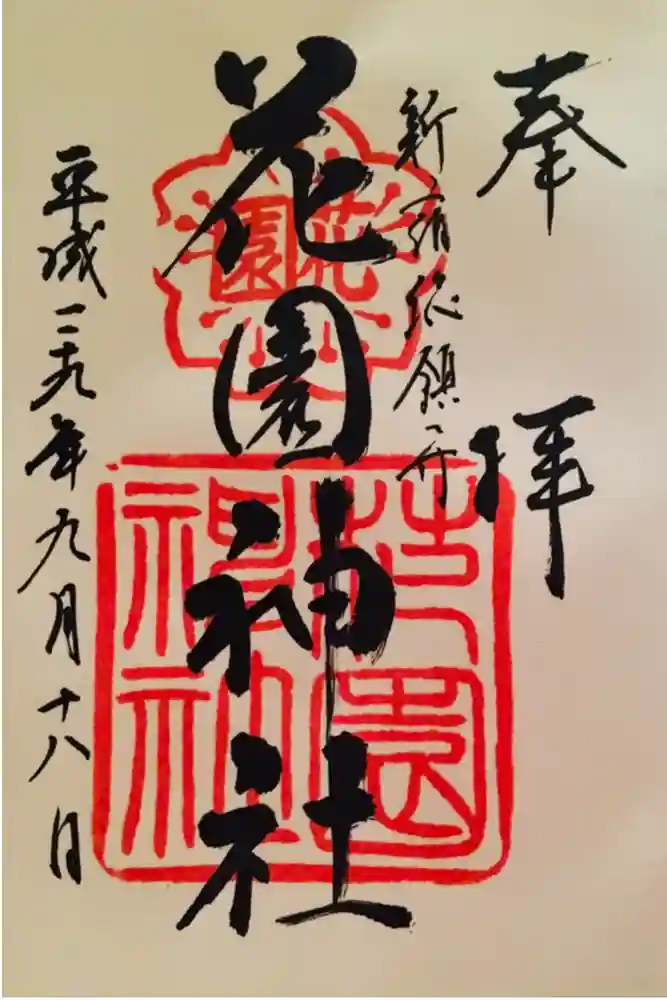 奉拝
新宿総鎮守
花園神社
平成二十九年九月十八日
花園
花園神社